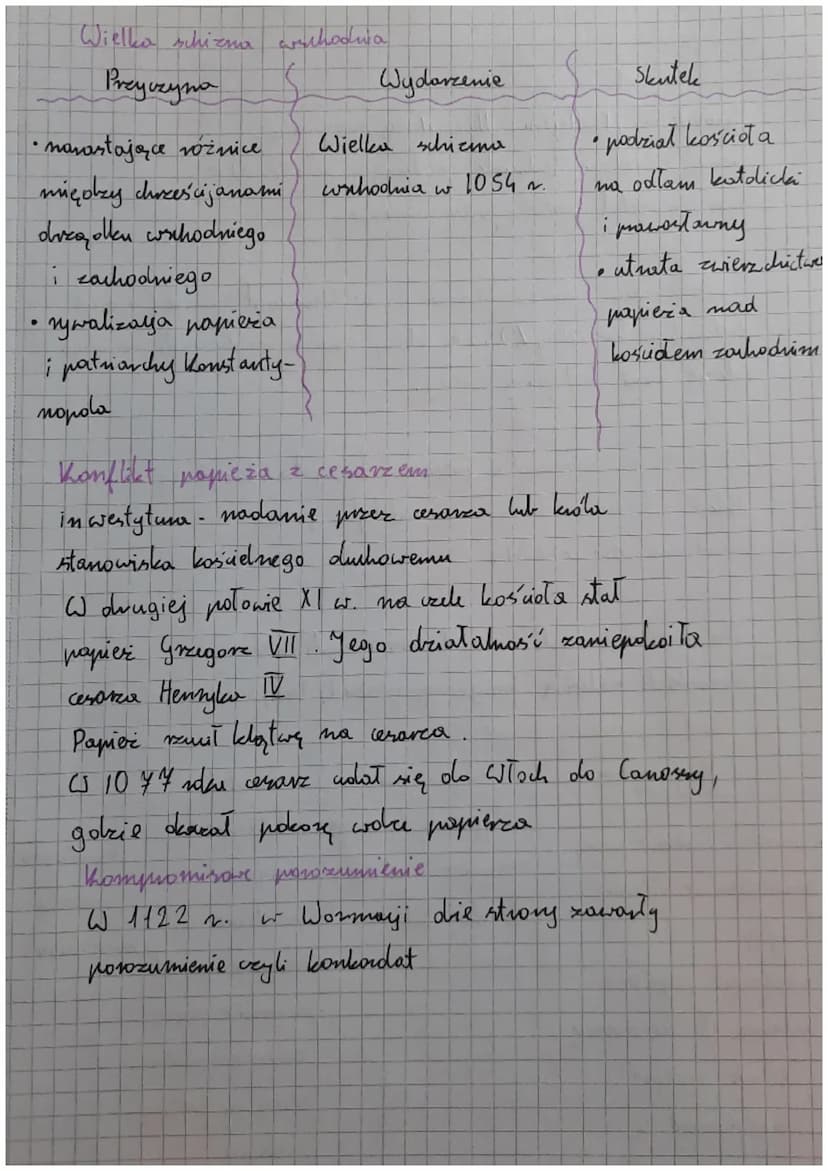 Wielka schizma wschodnia
Przyczyna
Wydarzenie
Skutek
• narastające różnice
między chrześcijanami
obrządku wschodniego
i zachodniego
• rywalizacja papieża
i patriarchy Konstanty-
nopola
Wielka schizma
wschodnia w 1054 r.
• podział kościoła
na odłam katolicki
i prawosławny
• utrata zwierzchictwa
papieża nad
kościołem zachodnim
Konflikt papieża z cesarzem
inwestytura - nadanie przez cesarza lub króla
stanowiska kościelnego duchowemu
W drugiej połowie XI w. na czele kościoła stał
papież Grzegorz VII. Jego działalność zaniepokoiła
cesarza Henryka IV
Papież rzucił klątwę na cesarza.
W 1077 roku cesarz udał się do Włoch do Canossy,
gdzie okazał pokorę wobec papierza
Kompromisowe porozumienie
W 1122 r. w Wormacji obie strony zawarły
porozumienie czyli konkordat